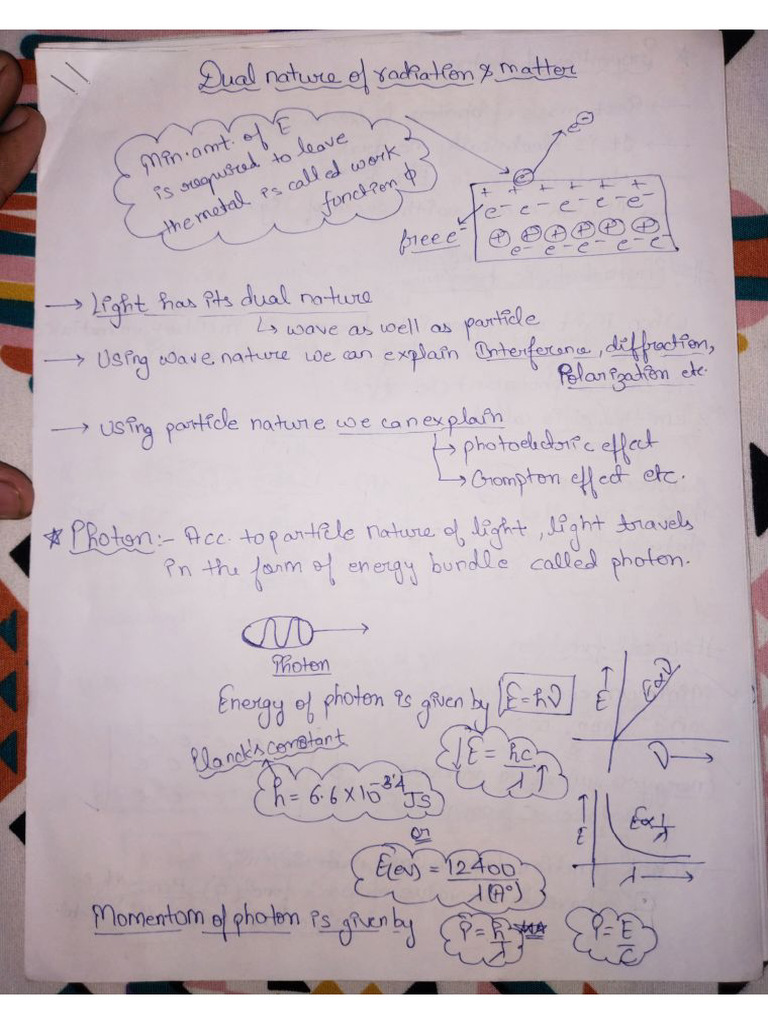 Dual nature of radiation & matter
Min. amt. of E
is required to leave
the metal is called work
function ϕ
e⊖
e⊖
+ + + + + +
e⁻ e⁻ e⁻ e⁻ e⁻
free e⁻
⊕ ⊕ ⊕ ⊕ ⊕ ⊕
e⁻ e⁻ e⁻ e⁻
→ Light has its dual nature
↳ wave as well as particle
→ Using wave nature we can explain Interference, diffraction,
Polarization etc.
→ Using particle nature we can explain
↳ photoelectric effect
↳ Crompton effect etc.
* Photon:- Acc. to particle nature of light, light travels
in the form of energy bundle called photon.
Photon
Energy of photon is given by E=hν
↑ E
E∝ν
ν →
Planck's constant
h = 6.6 × 10⁻³⁴ JS
↓E = hc/λ↑
or
E(ev) = 12400/λ(A°)
↑ E
E∝1/λ
λ →
Momentom of photon is given by P = h/λ P = E/C